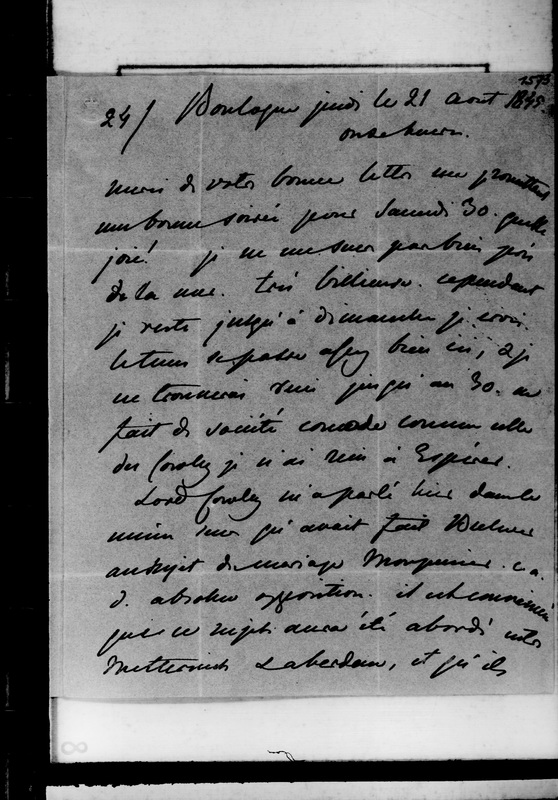 24/ Boulogne jeudi le 21 août 1845.
onze heures.
merci de votre bonne lettre me promettant
une bonne soirée pour Samedi 30. quelle
joie! je ne me sens pas bien près
de la mer. très bilieuse. cependant
je reste jusqu'à dimanche je crois.
le tems se passe assez bien ici, & je
ne trouverai rien jusqu'au 30. en
fait de société comode comme celle
des Cowley je n'ai rien à Espérer.
Lord Cowley m'a parlé hier dans le
même sens qu'avait fait Bulwer
au sujet du mariage Monpensier. c. a.
d. absolue opposition. il est convaincu
que ce sujet aura été abordé entre
Metternich & Aberdeen, et qu'ils